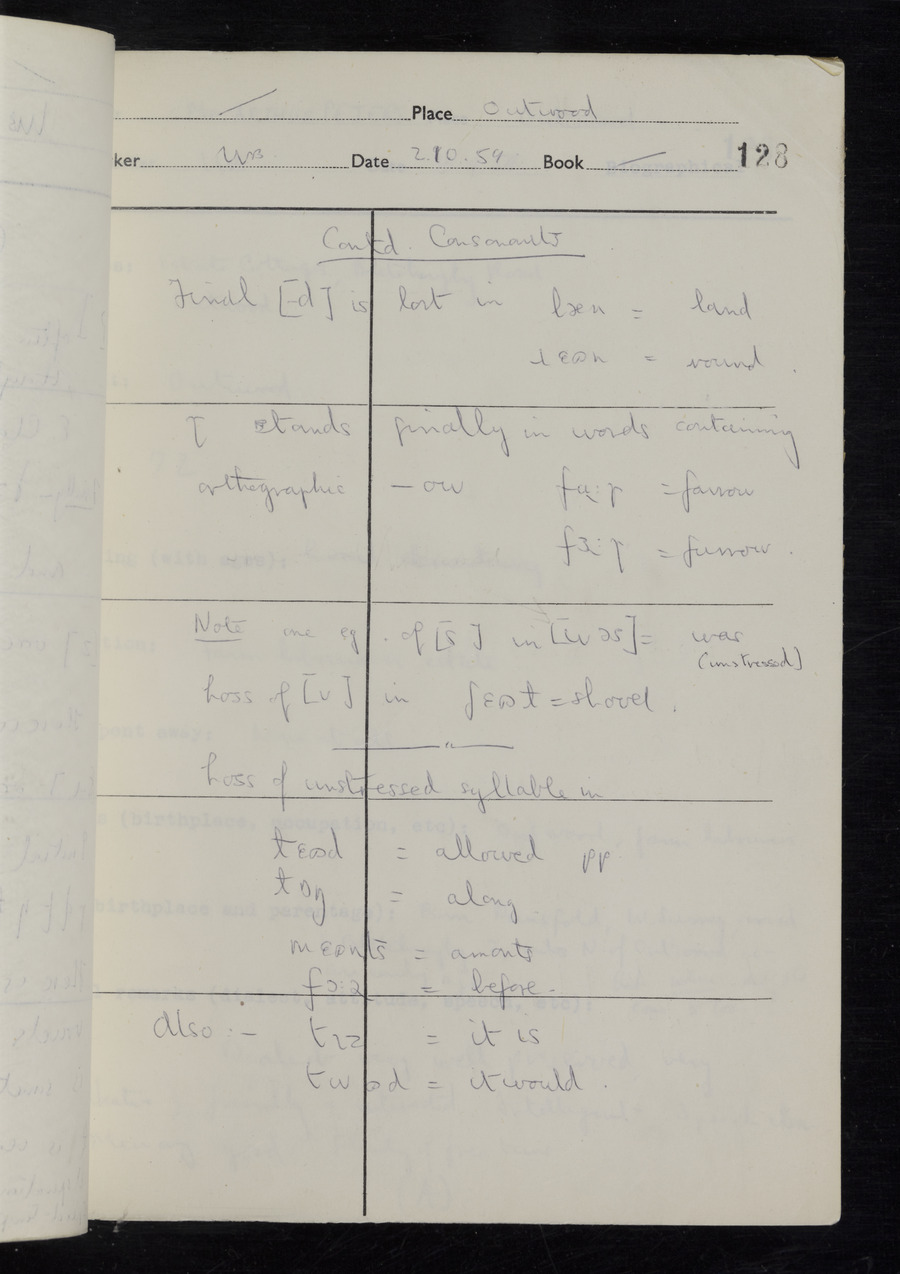 Place Outwood
ker Date 2.10.59 Book 128
Contd. Consonants
Final [-d] is lost in læn = land
ɹɛʊn = round.
stands finally in words containing
orthographic -ow = farrow
= furrow.
Note one eg. of [s] in [wəs] = was
(unstressed)
Loss of [v] in ʃɛʊɫ = shovel.
Loss of unstressed syllable in
ɫɛʊd = allowed pp.
ɫɒŋ = along
mɛʊnts = amonts
= before.
Also:- tɪz = it is
twʊd = it would.